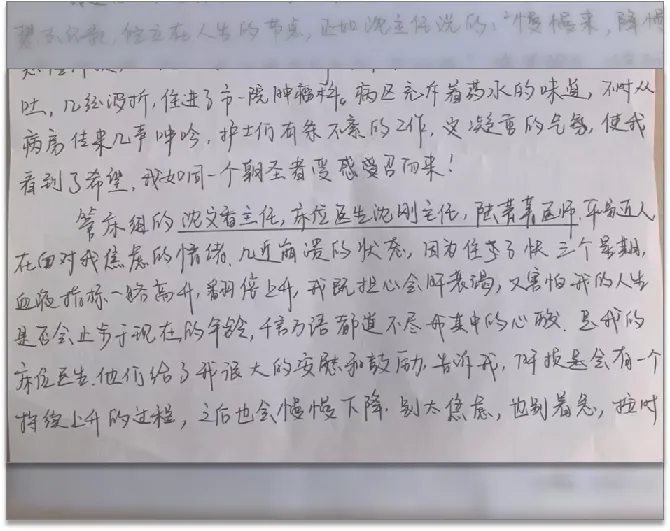 人生的节点,正如沈主任说的:"慢慢来,降慢
吐,几经波折,住进了市一院肿瘤科。病区充斥着药水的味道,不时从
病房传来几声呻吟,护士们有条不紊的工作,这凝重的气氛,使我
看到了希望,我如同一个朝圣者受感受召而来!
管床组的沈文香主任,床位医生沈刚主任,陆萧萧医师,平易近人
在面对我焦虑的情绪、几近崩溃的状态,因为住了快三个星期,
血液指标一路高升,翻倍上升,我既担心会肝衰竭,又害怕我的人生
是否会止步于现在的年龄,千言万语都道不尽我其中的心酸.是我的
床位医生.他们给了我很大的安慰和鼓励.告诉我,肝损是会有一个
持续上升的过程,之后也会慢慢下降.别太焦虑,也别着急,按时